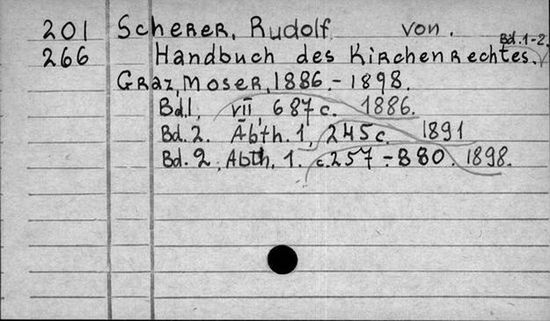 201 Scherer, Rudolf von.
266 Handbuch des Kirchenrechtes. Bd.1-2.
Graz, Moser, 1886.-1898.
Bd.1. VII, 687 c. 1886.
Bd. 2. Abth. 1, 245 c. 1891
Bd. 2, Abth. 1. c.257-880. 1898.